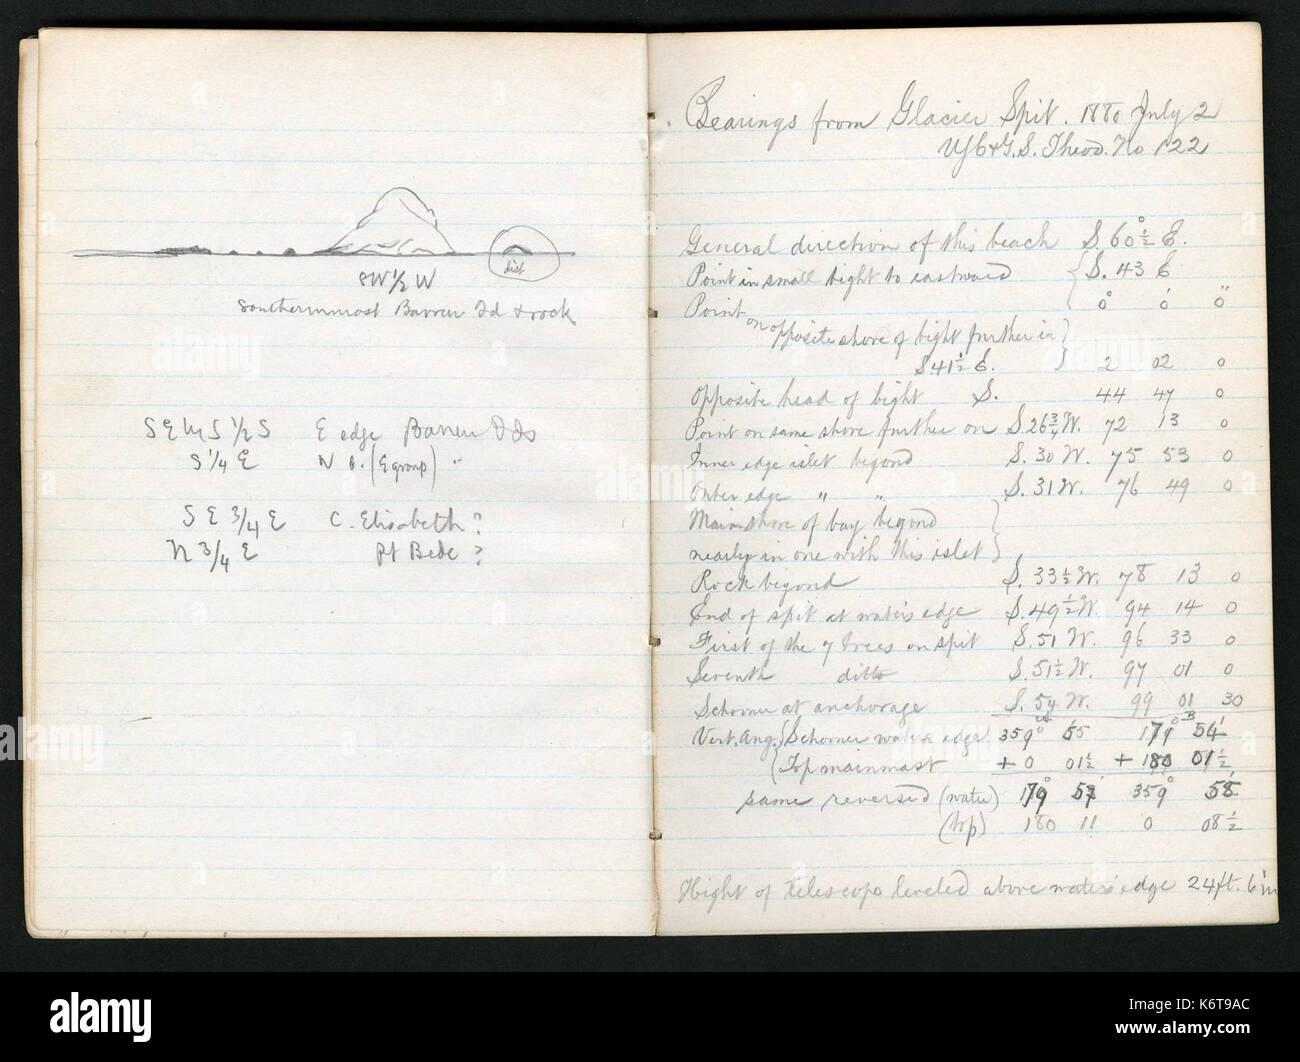 dist
SW 1/2 W
Southernmost Barren Id & rock
S E by S 1/2 S E edge Barren Ids
S 1/4 E N (E group) "
S E 3/4 E C. Elisabeth?
N 3/4 E Pt Bede ?
Bearings from Glacier Spit. 1880 July 2
U.S.C&G.S. Theod. No 122
General direction of this beach S. 60 1/2° E.
Point in small bight to eastward { S. 43 E
Point 0° 0' 0"
on opposite shore of bight further in }
S 41 1/2 E. 2 02 0
Opposite head of bight S. 44 47 0
Point on same shore further on S. 26 3/4 W. 72 13 0
Inner edge islet beyond S. 30 W. 75 53 0
Outer edge " " S. 31 W. 76 49 0
Main shore of bay beyond }
nearly in one with this islet }
Rock beyond S. 33 1/2 W. 78 13 0
End of spit at water's edge S. 49 1/2 W. 94 14 0
First of the 7 trees on spit S. 51 W. 96 33 0
Seventh ditto S. 51 1/2 W. 97 01 0
Schooner at anchorage S. 54 W. 99 01 30
A B
Vert. Ang. { Schooner water edge 359° 55 179° 54'
{ Top mainmast + 0 01 1/2 + 180 01 1/2
same reversed (water) 179° 57' 359° 58'
(top) 180 11 0 08 1/2
Hight of telescope leveled above water's edge 24 ft. 6 in
alamy
Image ID: K6T9AC
www.alamy.com